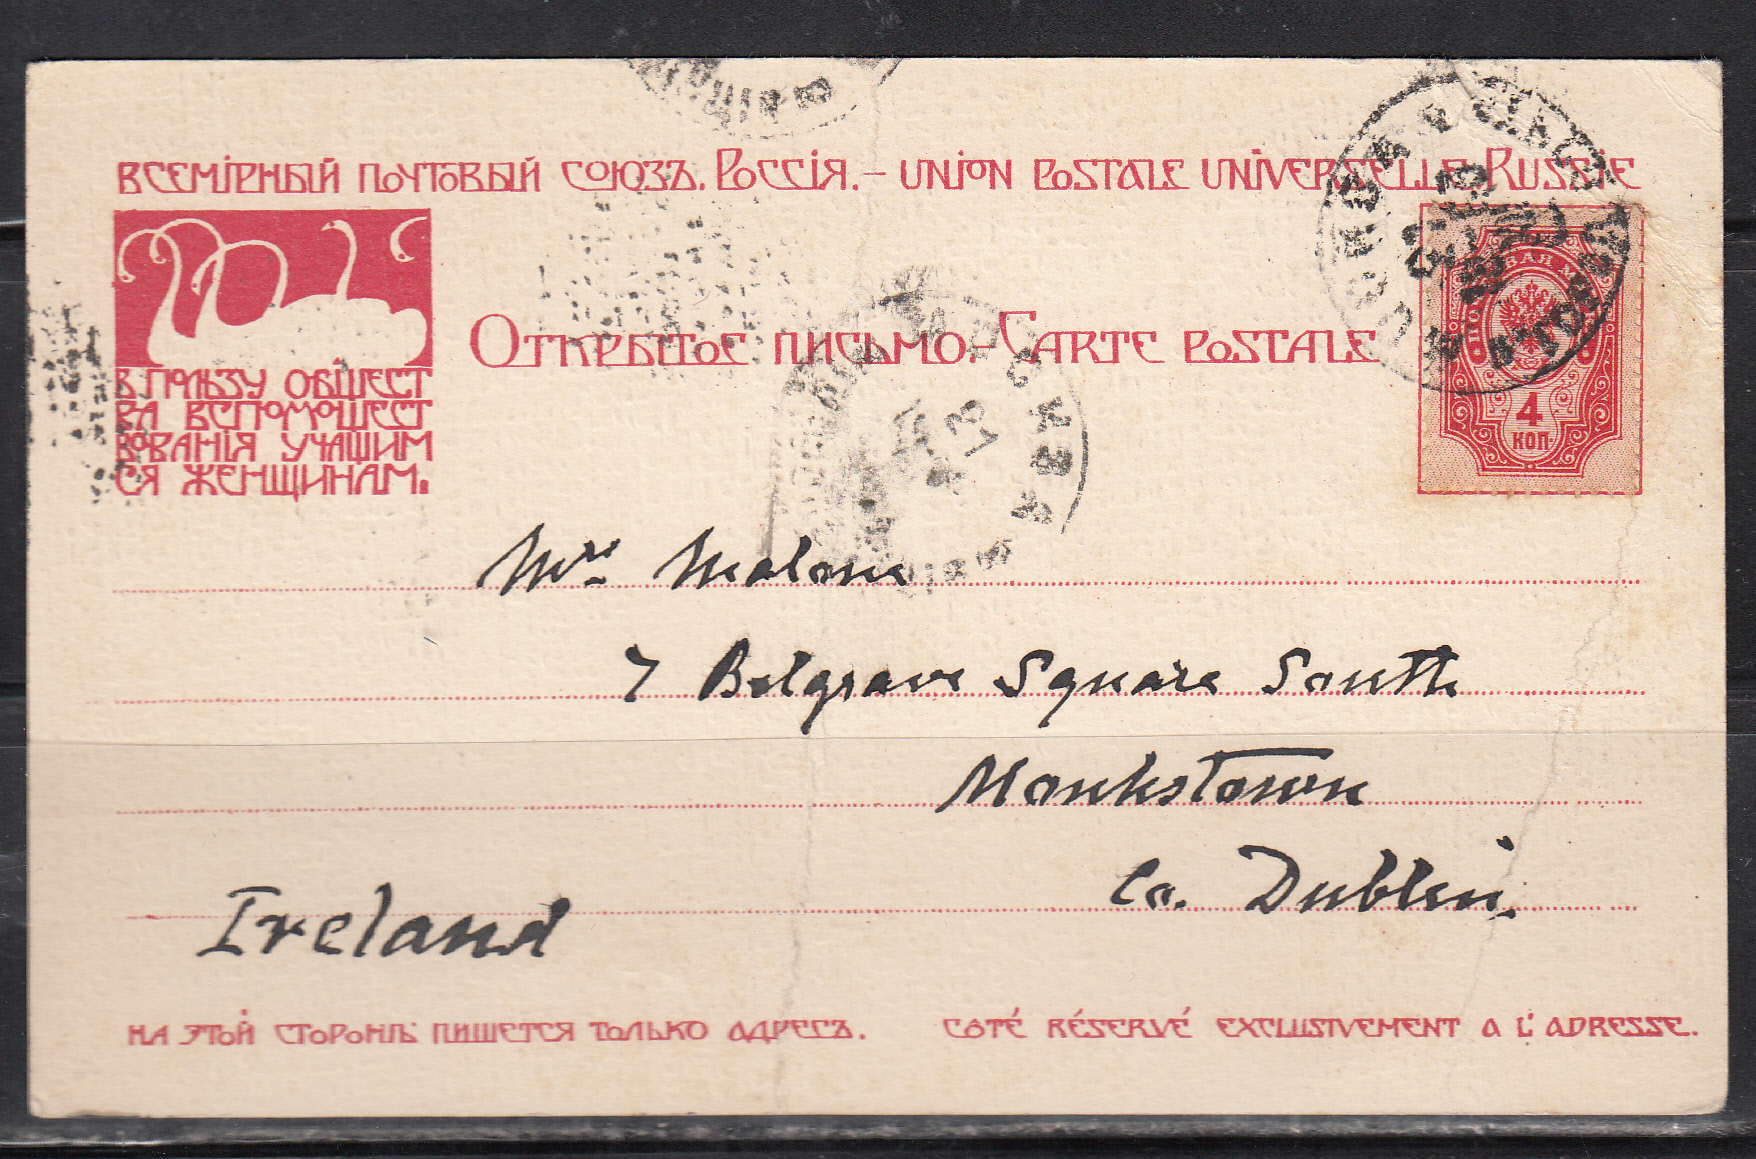 ВСЕМІРНЫЙ ПОЧТОВЫЙ СОЮЗЪ. РОССІЯ. – UNION POSTALE UNIVERSELLE. RUSSIE
В ПОЛЬЗУ ОБЩЕСТ
ВА ВСПОМОЩЕСТ
ВОВАНІЯ УЧАЩИМ
СЯ ЖЕНЩИНАМ.
ОТКРЫТОЕ ПИСЬМО. – CARTE POSTALE
4
КОП
Mrs. Malone
7 Belgrave Square South
Monkstown
Co. Dublin.
Ireland
НА ЭТОЙ СТОРОНѢ ПИШЕТСЯ ТОЛЬКО АДРЕСЪ. COTÉ RÉSERVÉ EXCLUSIVEMENT A L'ADRESSE.